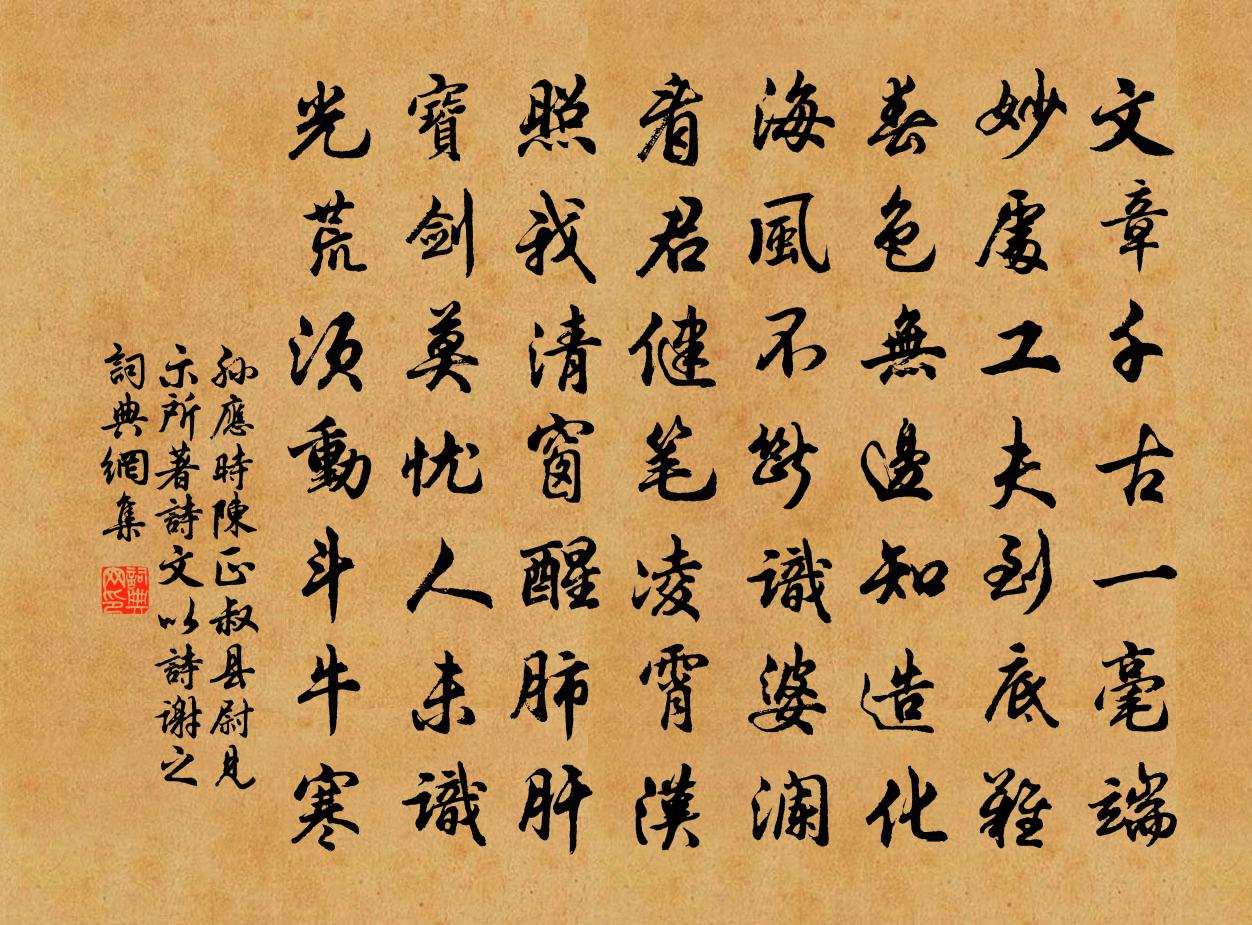 文章千古一毫端
妙處工夫到底難
春色無邊知造化
海風不斷識婆瀾
看君健笔凌霄漢
照我清窗醒肺肝
寶劍莫忧人未識
光荒须動斗牛寒
孙應時陳正叔县尉見
示所著詩文以詩謝之
詞典網集
詞典
网印